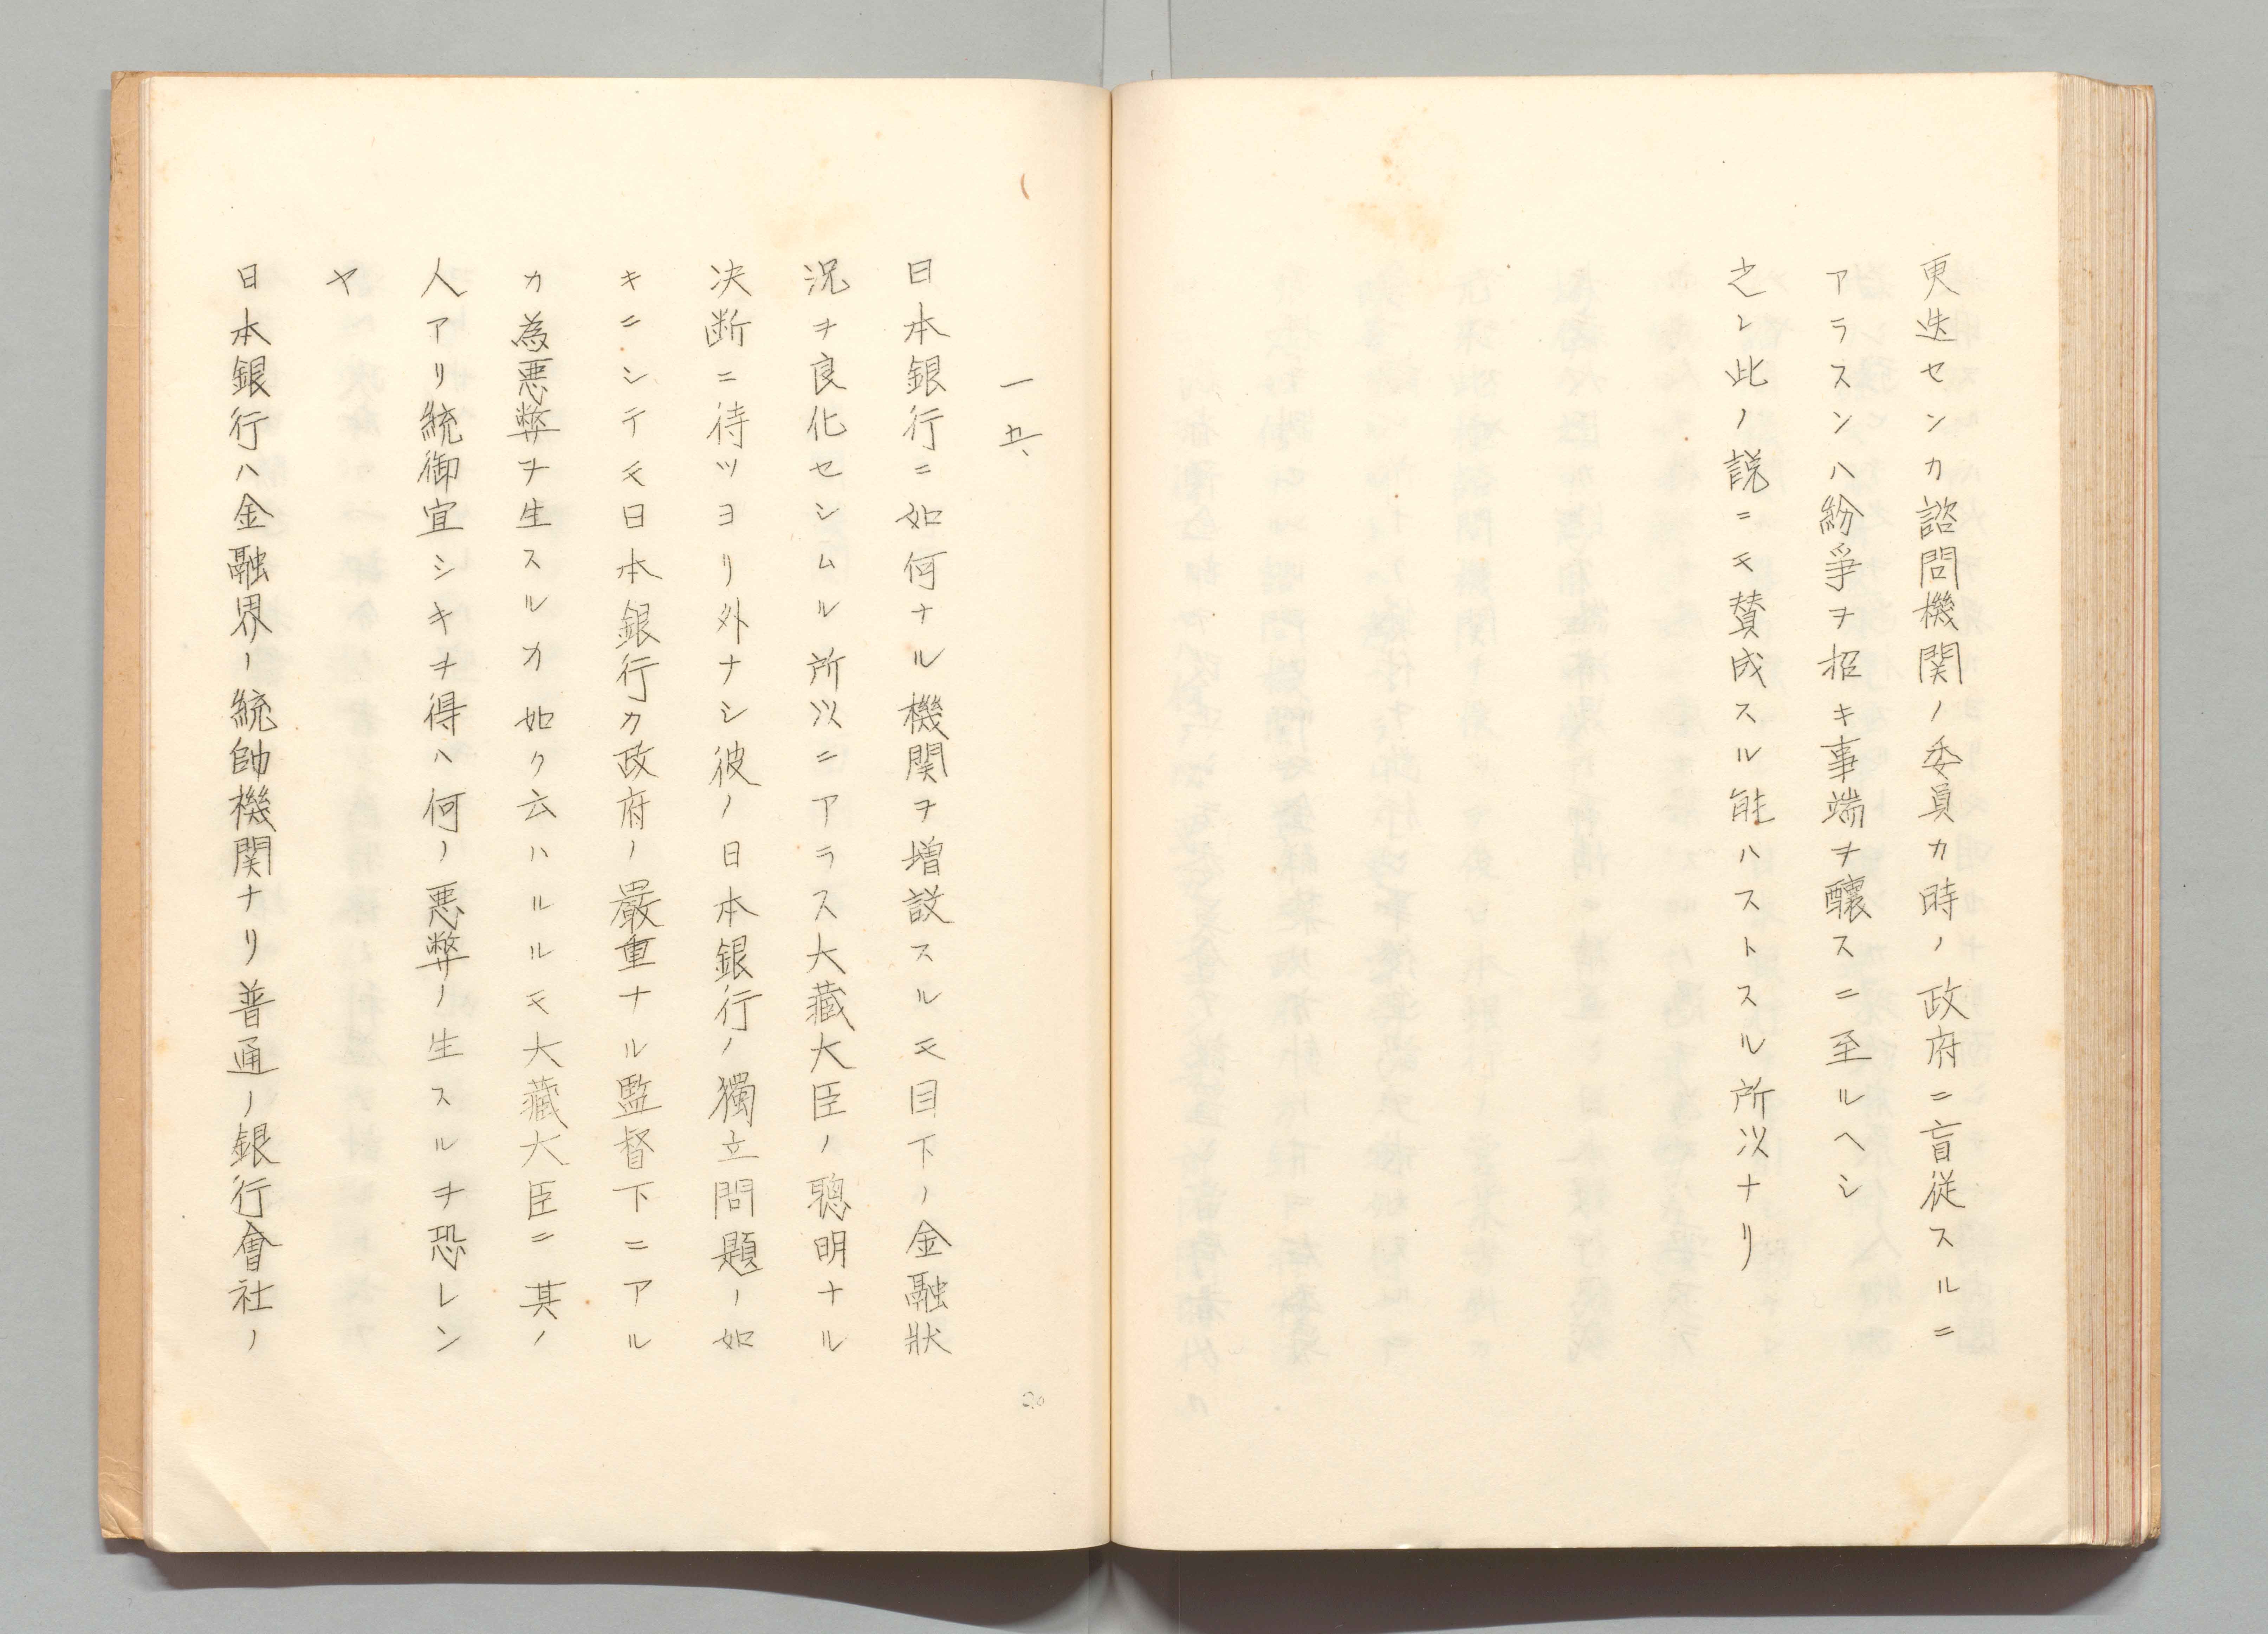 更迭センカ諮問機関ノ委員カ時ノ政府ニ盲従スルニ
アラスンハ紛爭ヲ招キ事端ヲ釀スニ至ルヘシ
之レ此ノ説ニモ賛成スル能ハストスル所以ナリ
一五、
日本銀行ニ如何ナル機関ヲ増設スルモ目下ノ金融狀
況ヲ良化セシムル所以ニアラス大藏大臣ノ聰明ナル
决断ニ待ツヨリ外ナシ彼ノ日本銀行ノ獨立問題ノ如
キニシテモ日本銀行カ政府ノ嚴重ナル監督下ニアル
カ為悪弊ヲ生スルカ如ク云ハルルモ大藏大臣ニ其ノ
人アリ統御宜シキヲ得ハ何ノ悪弊ノ生スルヲ恐レン
ヤ
日本銀行ハ金融界ノ統帥機関ナリ普通ノ銀行會社ノ
20